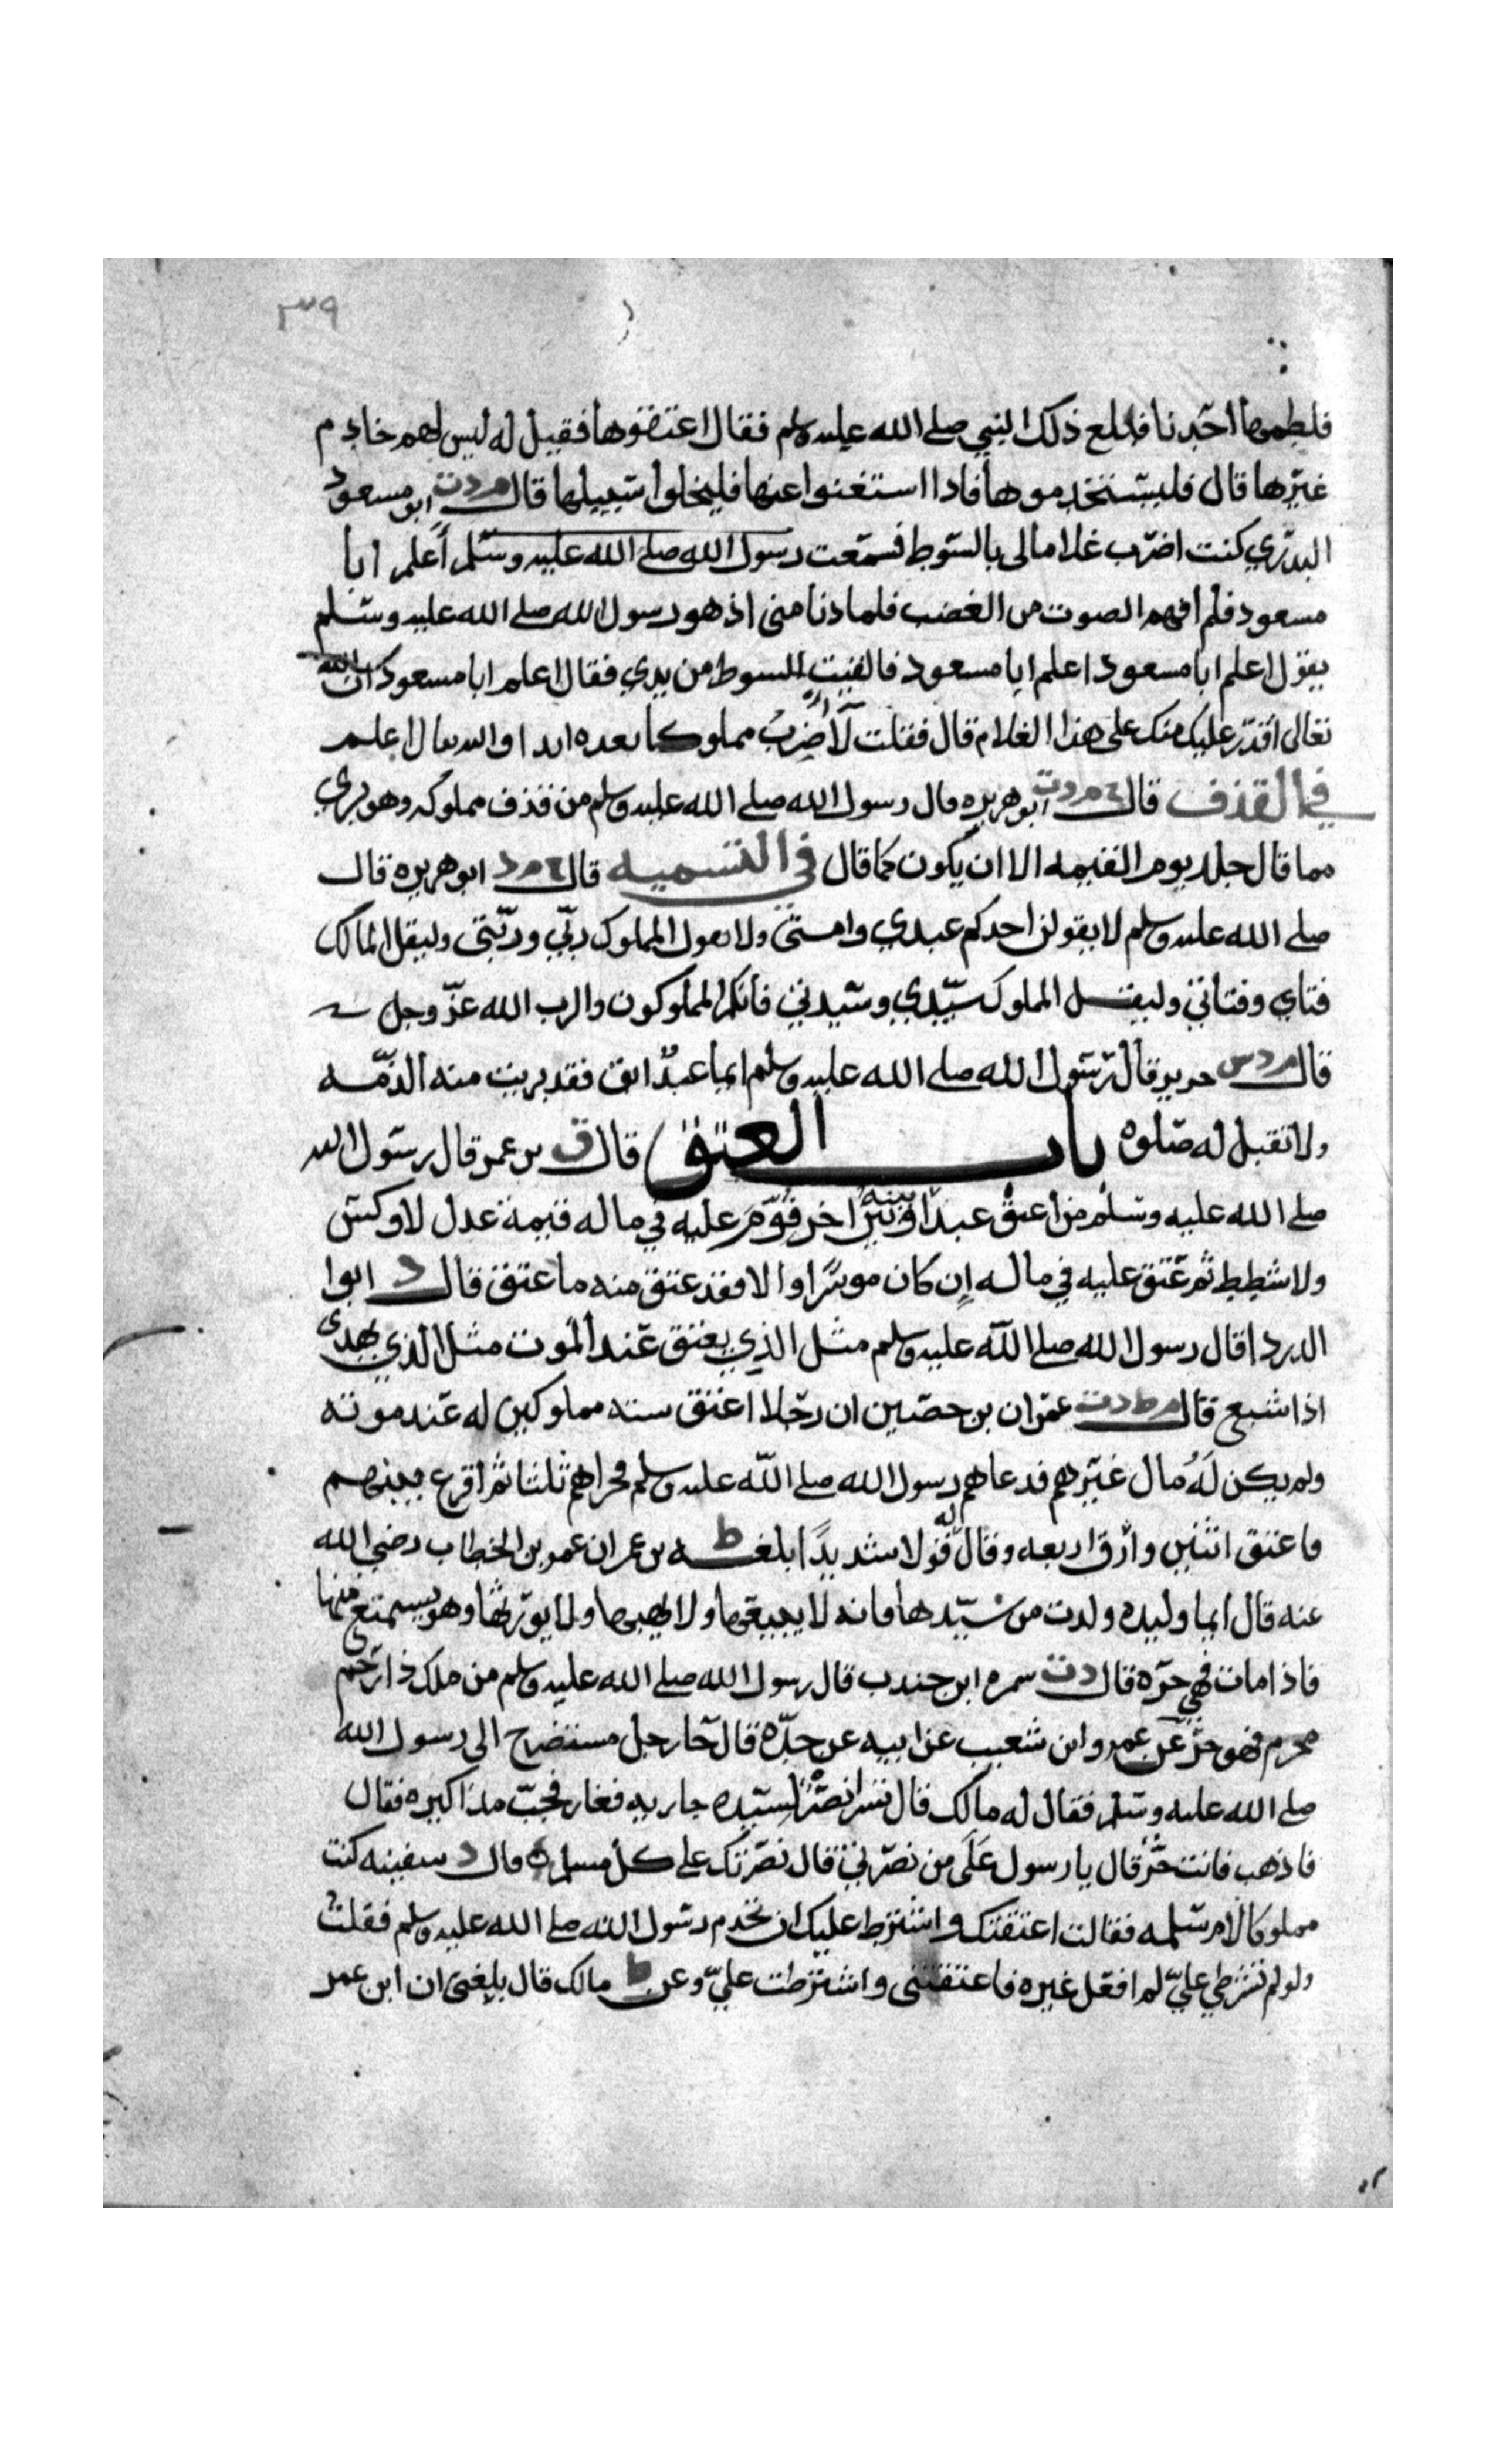 ٣٩
فلطمها احدنا فبلغ ذلك النبي صلى الله عليه وسلم فقال اعتقوها فقيل له ليس لهم خادم
غيرها قال فليستخدموها فاذا استغنوا عنها فليخلوا سبيلها قال م د ت ابو مسعود
البدري كنت اضرب غلاما لي بالسوط فسمعت رسول الله صلى الله عليه وسلم أعلم ابا
مسعود فلم افهم الصوت من الغضب فلما دنا مني اذ هو رسول الله صلى الله عليه وسلم
يقول اعلم ابا مسعود اعلم ابا مسعود فالقيت السوط من يدي فقال اعلم ابا مسعود ان الله
تعالى اقدر عليك منك على هذا الغلام قال فقلت لا اضرب مملوكا بعده ابدا والله تعالى اعلم
في القذف قال خ م د ت ابو هريره قال رسول الله صلى الله عليه وسلم من قذف مملوكه وهو بري
مما قال جلد يوم القيمه الا ان يكون كما قال في التسميه قال خ م د ابو هريره قال
صلى الله عليه وسلم لا يقولن احدكم عبدي وامتي ولا يقول المملوك ربّي وربّتي وليقل المالك
فتاي وفتاتي وليقل المملوك سيّدي وسيدتي فانكم المملوكون والرب الله عزّ وجل
قال م د س جرير قال رسول الله صلى الله عليه وسلم ايما عبدٌ ابق فقد بريت منه الذمّه
ولا تقبل له صلوه باب العتق قال ق بن عمر قال رسول الله
صلى الله عليه وسلم من اعتق عبدا بينه وبين اخر قُوّم عليه في ماله قيمة عدل لا وكس
ولا شطط ثم عتق عليه في ماله إن كان موسرًا والا فقد عتق منه ما عتق قال د ابوا
الدردا قال رسول الله صلى الله عليه وسلم مثل الذي يعتق عند الموت مثل الذي يهدي
اذا شبع قال م ط د ت عمران بن حصين ان رجلا اعتق سته مملوكين له عند موته
ولم يكن لَهُ مال غيرهم فدعاهم رسول الله صلى الله عليه وسلم فجزاهم ثلثا ثم اقرع بينهم
فاعتق اثنين وارق اربعه وقال له قولا شديدًا ابلغ ط ه بن عمر ان عمر بن الخطاب رضي الله
عنه قال ايما وليده ولدت من سيّدها فانه لا يبيعها ولا يهبها ولا يورّثها وهو يستمتع منها
فاذا مات فهي حرّه قال د ت سمره ابن جندب قال رسول الله صلى الله عليه وسلم من ملك ذا رحم
محرم فهو حرّ عن عمرو ابن شعيب عن ابيه عن جدّه قال جا رجل مستضرح الى رسول الله
صلى الله عليه وسلم فقال له مالك قال لسيّده جاريه فغار فجبّ مذاكيره فقال
فاذهب فانت حُرّ قال يا رسول عَلَى من نصرتي قال نصرتك على كل مسلم وقال د سفينه كنت
مملوكا لام سلمه فقالت اعتقتك واشترط عليك ان تخدم رسول الله صلى الله عليه وسلم فقلت
ولو لم تشترطي عليّ لم افعل غيره فاعتقتني واشترطت عليّ وعن ط مالك قال بلغني ان ابن عمر